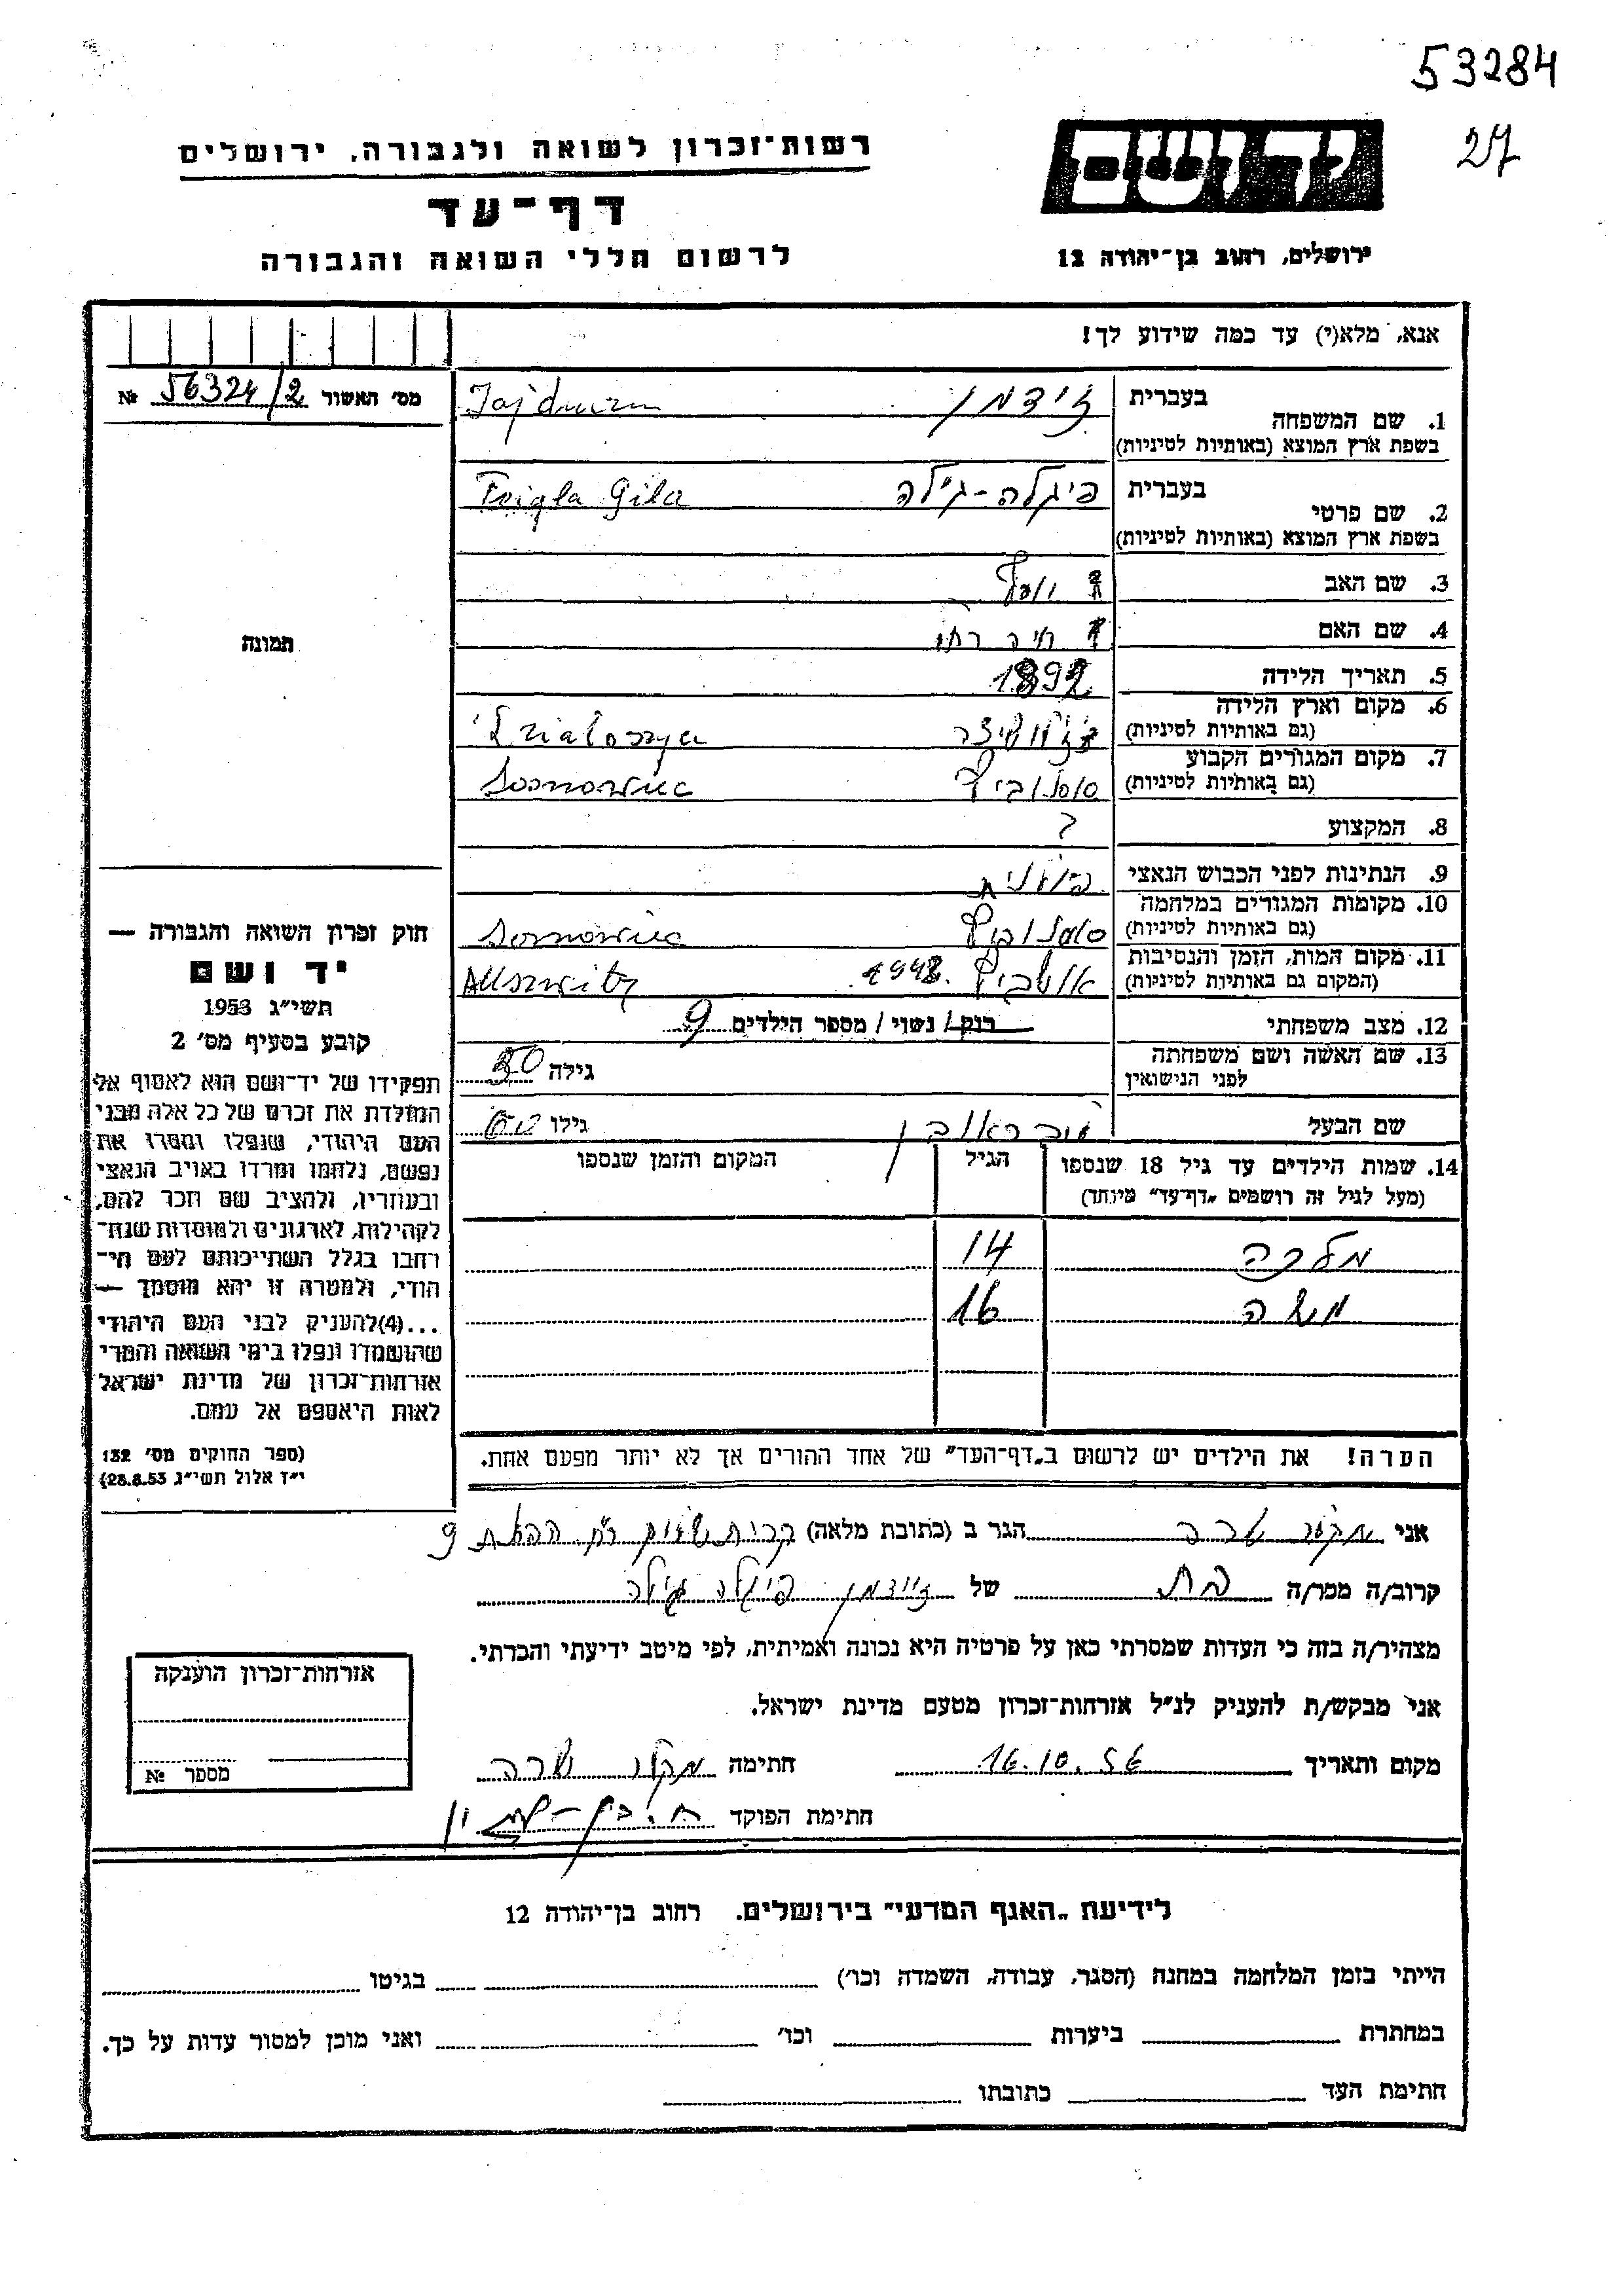 53284
27
יד ושם
רשות־זכרון לשואה ולגבורה, ירושלים
דף־עד
לרשום חללי השואה והגבורה
ירושלים, רחוב בן־יהודה 12
אנא, מלא(י) עד כמה שידוע לך!
מס׳ האשור 56324/2 №
תמונה
בעברית זידמן
1. שם המשפחה
בשפת ארץ המוצא (באותיות לטיניות) Zajdman
בעברית פיגלה-גילה
2. שם פרטי
בשפת ארץ המוצא (באותיות לטיניות) Fajgla Gila
3. שם האב יוסף
4. שם האם
5. תאריך הלידה 1892
6. מקום וארץ הלידה
(גם באותיות לטיניות) Dzialoszyce
7. מקום המגורים הקבוע
(גם באותיות לטיניות) סוסנוביץ Sosnowiec
8. המקצוע ?
9. הנתינות לפני הכבוש הנאצי פולנית
10. מקומות המגורים במלחמה
(גם באותיות לטיניות) סוסנוביץ Sosnowiec
11. מקום המות, הזמן והנסיבות
(המקום גם באותיות לטיניות) אושביץ 1943. Auswitz
12. מצב משפחתי רוק/נשוי/מספר הילדים 9
13. שם האשה ושם משפחתה
לפני הנישואין גילה 50
שם הבעל דוב ראובן גילו 60
14. שמות הילדים עד גיל 18 שנספו הגיל המקום והזמן שנספו
(מעל לגיל זה רושמים „דף־עד״ מיוחד)
מלכה 14
משה 16
הערה! את הילדים יש לרשום ב„דף־העד״ של אחד ההורים אך לא יותר מפעם אחת.
חוק זכרון השואה והגבורה —
יד ושם
תשי״ג 1953
קובע בסעיף מס׳ 2
תפקידו של יד־ושם הוא לאסוף אל
המולדת את זכרם של כל אלה מבני
העם היהודי, שנפלו ומסרו את
נפשם, נלחמו ומרדו באויב הנאצי
ובעוזריו, ולהציב שם וזכר להם,
לקהילות, לארגונים ולמוסדות שנח־
רחבו בגלל השתייכותם לעם הי־
הודי, ולמטרה זו יהא מוסמך —
...(4)להעניק לבני העם היהודי
שהושמדו ונפלו בימי השואה והמרי
אזרחות־זכרון של מדינת ישראל
לאות היאספם אל עמם.
(ספר החוקים מס׳ 132
י״ז אלול תשי״ג 28.8.53)
אני שרה הגר ב (כתובת מלאה) 9
קרוב/ה מכר/ה בת של זיידמן פיגלה גילה
מצהיר/ה בזה כי העדות שמסרתי כאן על פרטיה היא נכונה ואמיתית, לפי מיטב ידיעתי והכרתי.
אני מבקש/ת להעניק לנ״ל אזרחות־זכרון מטעם מדינת ישראל.
מקום ותאריך 16.10.56 חתימה שרה
חתימת הפוקד
אזרחות־זכרון הוענקה
מספר №
לידיעת „האגף המדעי״ בירושלים. רחוב בן־יהודה 12
הייתי בזמן המלחמה במחנה (הסגר, עבודה, השמדה וכו׳) בגיטו
במחתרת ביערות וכו׳ ואני מוכן למסור עדות על כך.
חתימת העד כתובתו